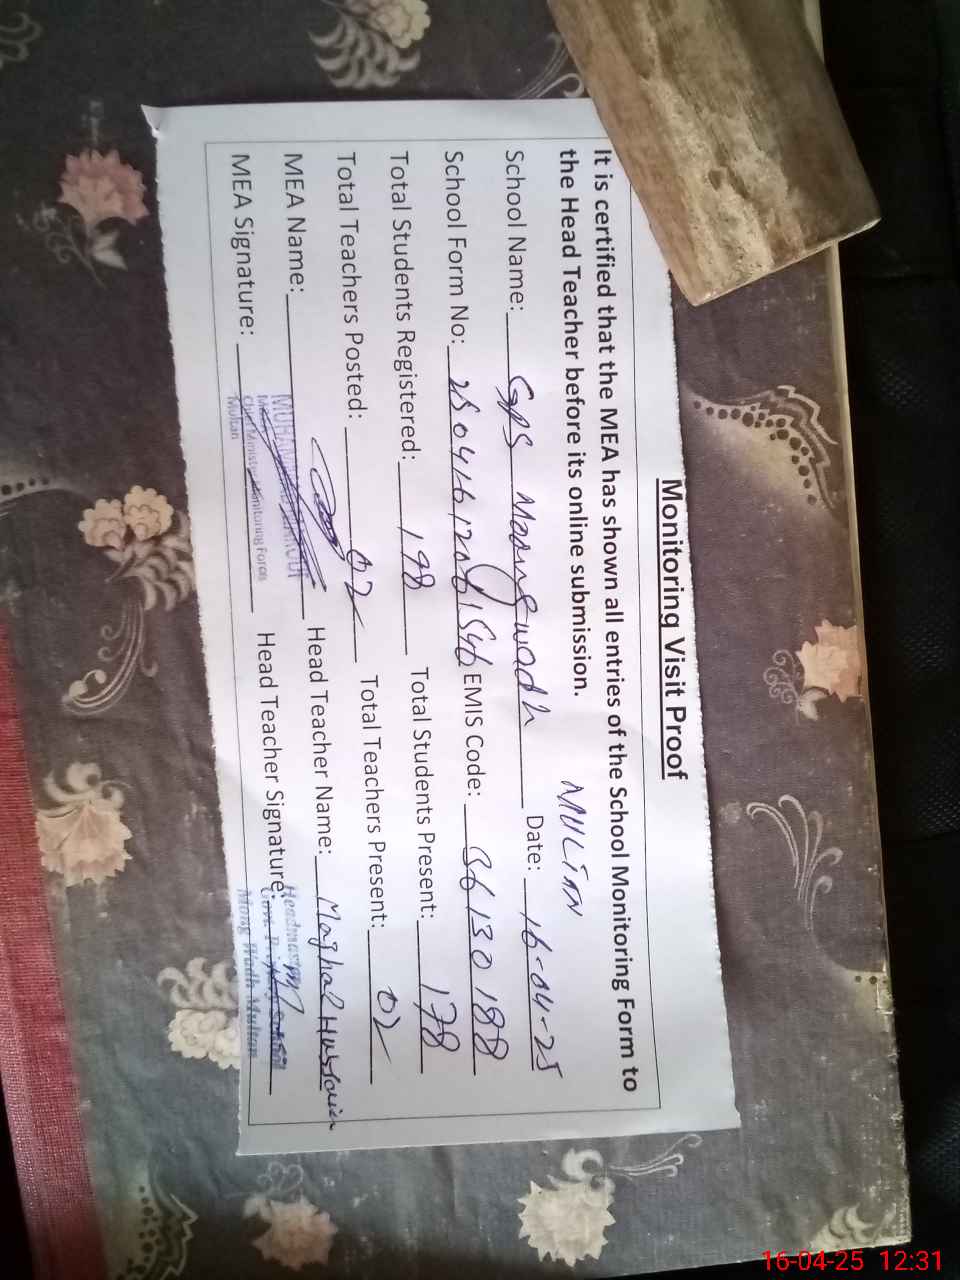 Monitoring Visit Proof
It is certified that the MEA has shown all entries of the School Monitoring Form to
the Head Teacher before its online submission.
MULTAN
School Name: GPS Moongwadh Date: 16-04-25
School Form No: EMIS Code: 36130188
Total Students Registered: 198 Total Students Present: 178
Total Teachers Posted: 02 Total Teachers Present: 02
MEA Name: Head Teacher Name: Maghal Hussain
MUHAMMAD
Chief Minister Monitoring Force
Multan
MEA Signature: Head Teacher Signature:
Headmaster
Mong Wadh Multan
16-04-25 12:31